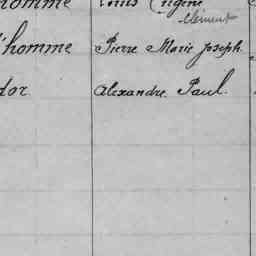 homme Louis Eugène
Clément
l'homme Pierre Marie Joseph
dor. Alexandre Paul.